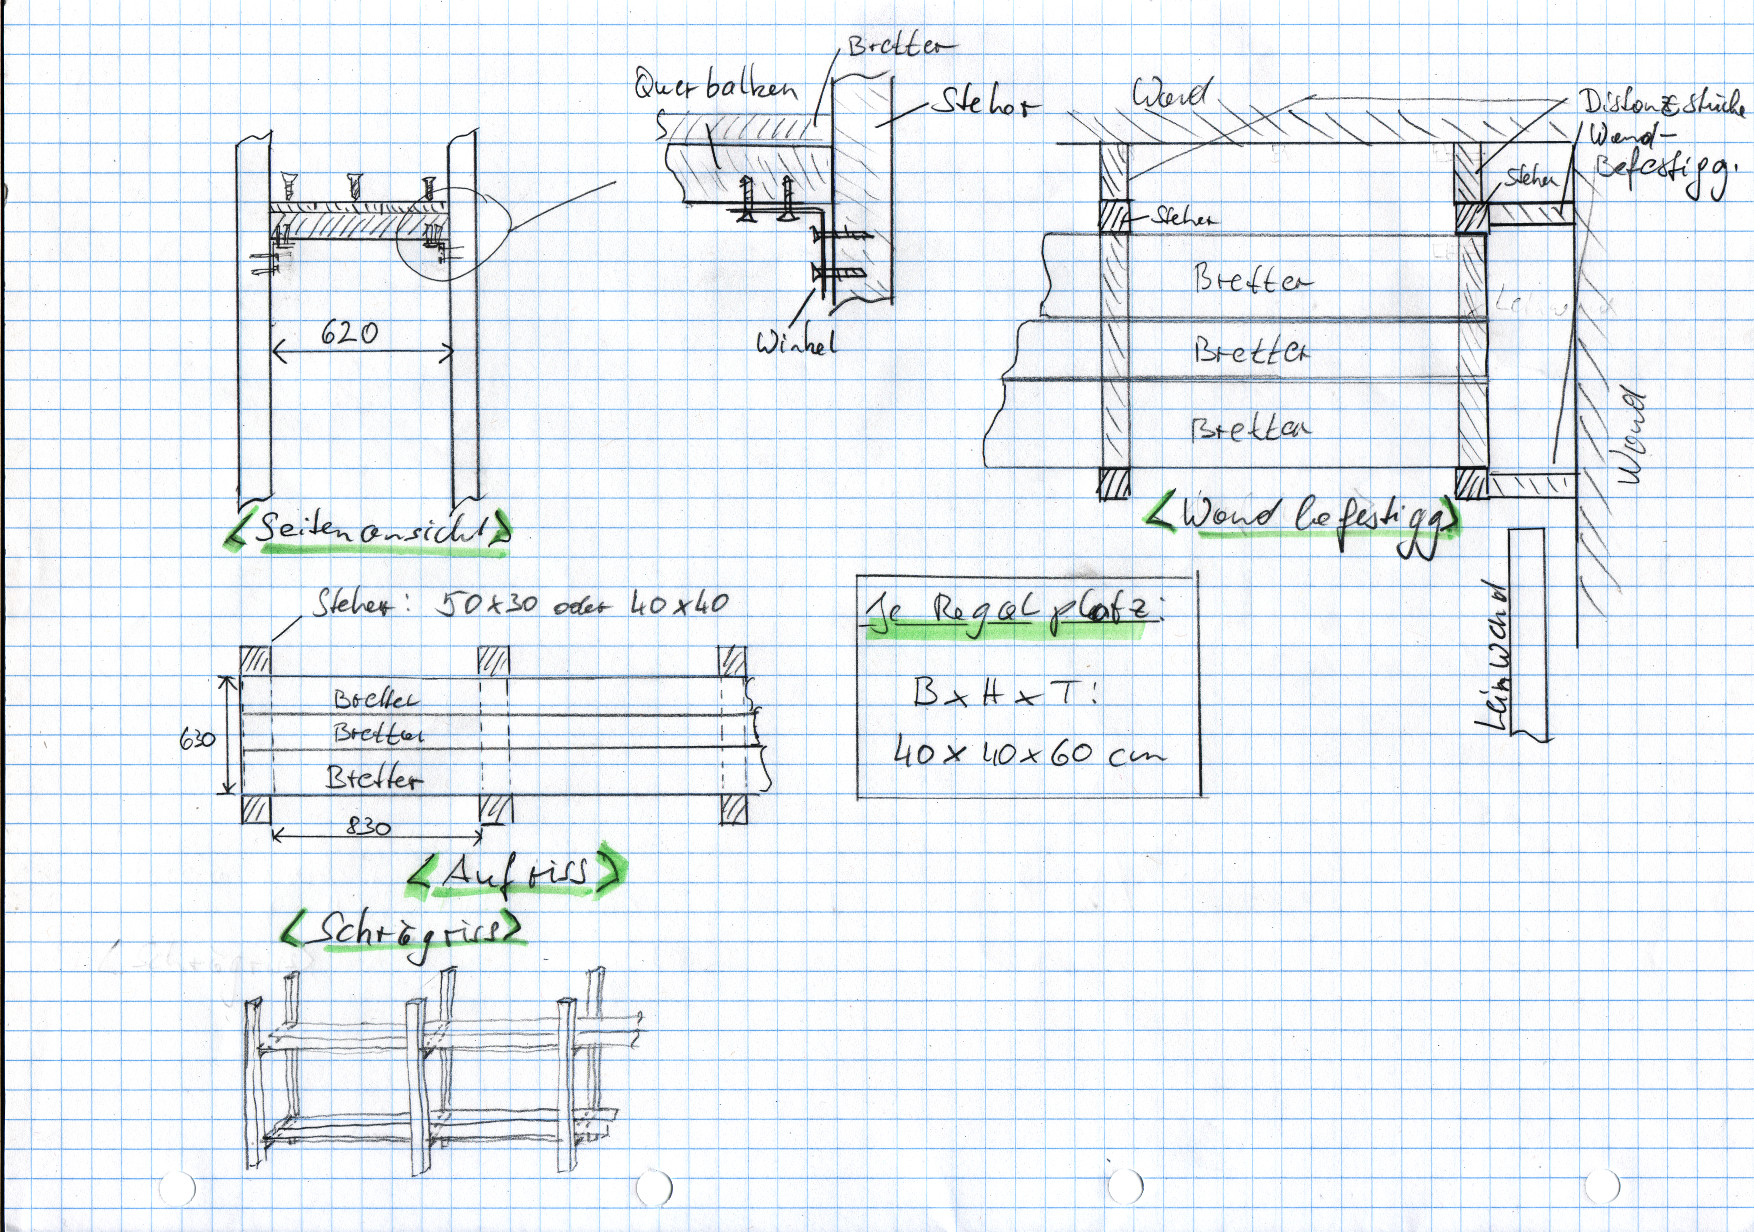 Bretter
Querbalken
Steher
Wand
Distanzstücke
Wand-
Befestigg.
Steher
Steher
Bretter
Bretter
Bretter
Wand
620
Winkel
<Seitenansicht>
<Wandbefestigg>
Leinwand
Steher: 50x30 oder 40x40
Bretter
Bretter
Bretter
630
830
<Aufriss>
Je Regalplatz:
B x H x T:
40 x 40 x 60 cm
<Schrägriss>